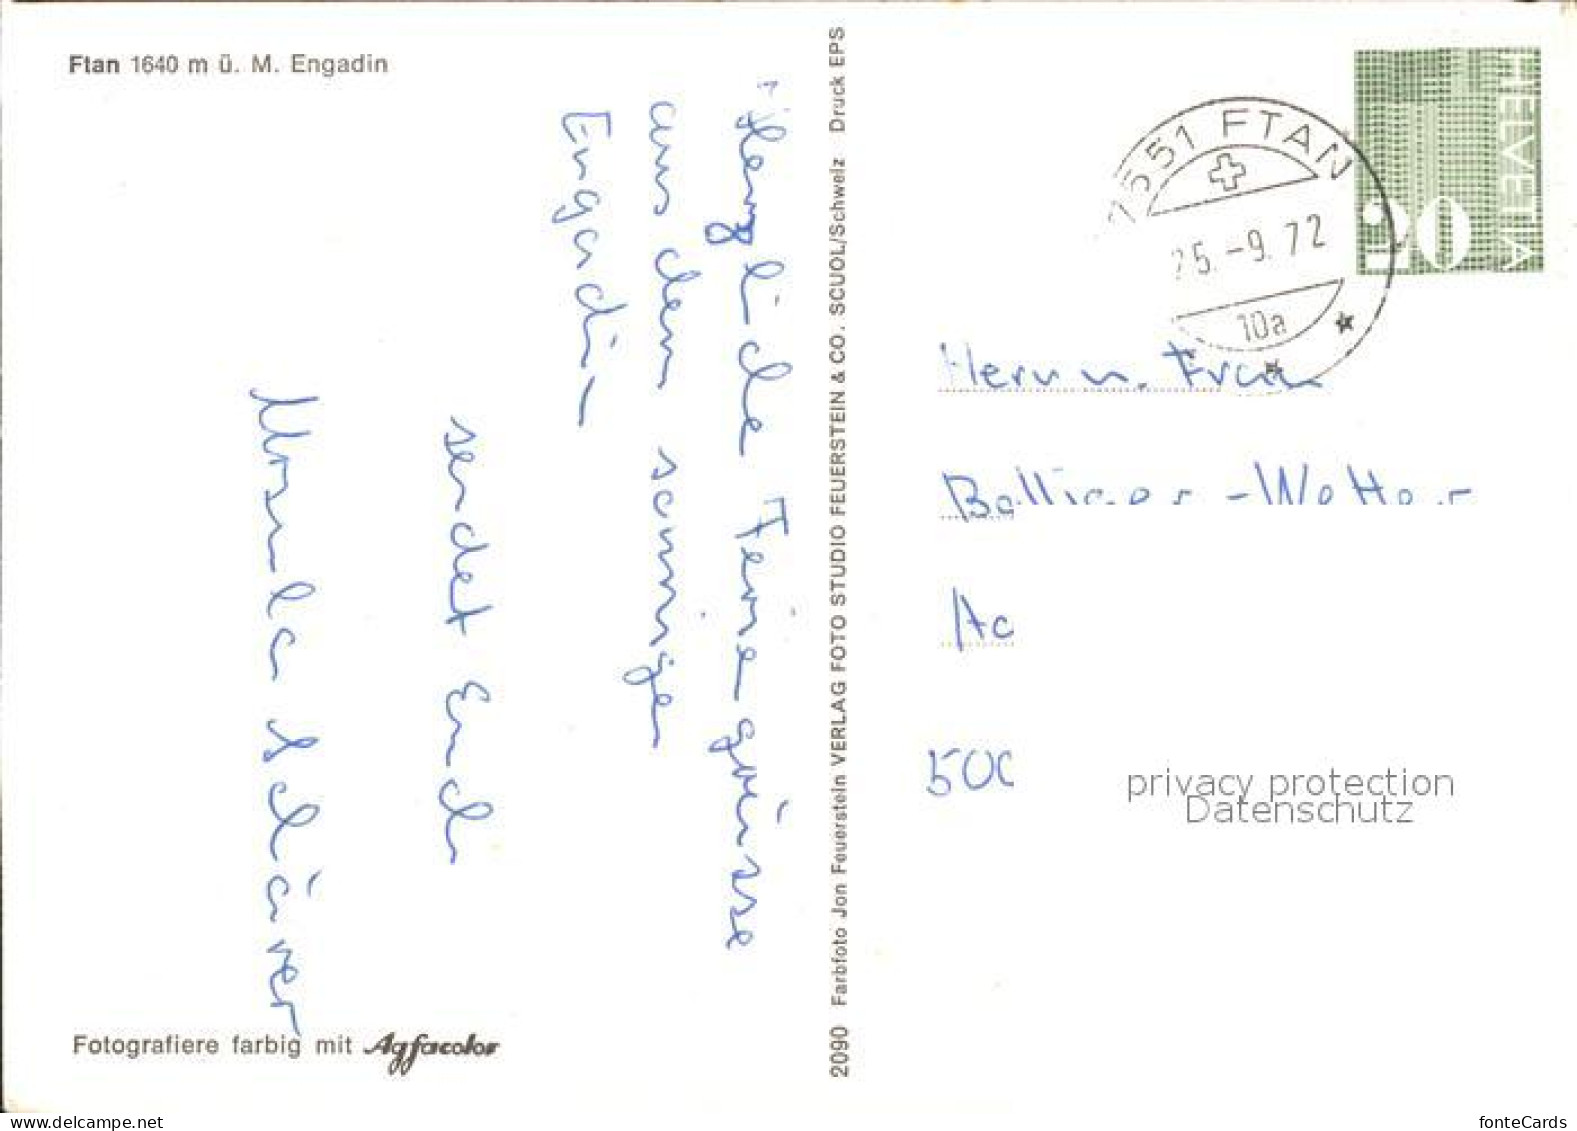 Ftan 1640 m ü. M. Engadin
Herzliche Feriengrüsse
aus dem sonnigen
Engadin
sendet Euch
Ursula Schärer
Fotografiere farbig mit Agfacolor
2090 Farbfoto Jon Feuerstein VERLAG FOTO STUDIO FEUERSTEIN & CO. SCUOL/Schweiz Druck EPS
HELVETIA
7551 FTAN
25.-9.72
10a
Herr u. Frau
privacy protection
Datenschutz
www.delcampe.net
fonteCards